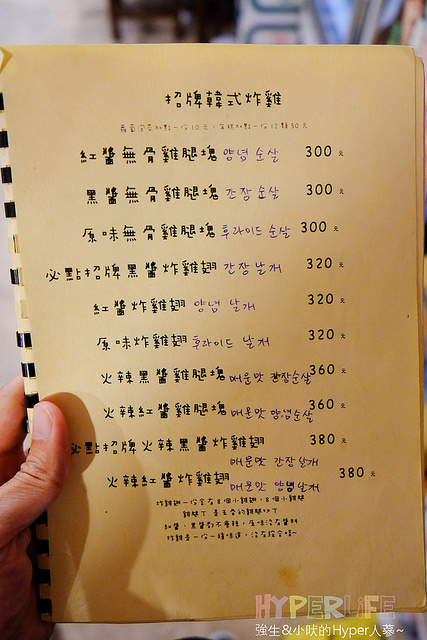 招牌韓式炸雞
紅醬無骨雞腿塊 양념 순살 300 元
黑醬無骨雞腿塊 간장 순살 300 元
原味無骨雞腿塊 후라이드 순살 300 元
必點招牌黑醬炸雞翅 간장 날개 320 元
紅醬炸雞翅 양념 날개 320 元
原味炸雞翅 후라이드 날개 320 元
火辣黑醬雞腿塊 매운맛 간장순살 360 元
火辣紅醬雞腿塊 매운맛 양념순살 360 元
必點招牌火辣黑醬炸雞翅 380 元
매운맛 간장 날개
火辣紅醬炸雞翅 매운맛 양념 날개 380 元
HYPERLIFE
強生&小吠的Hyper人蔘~